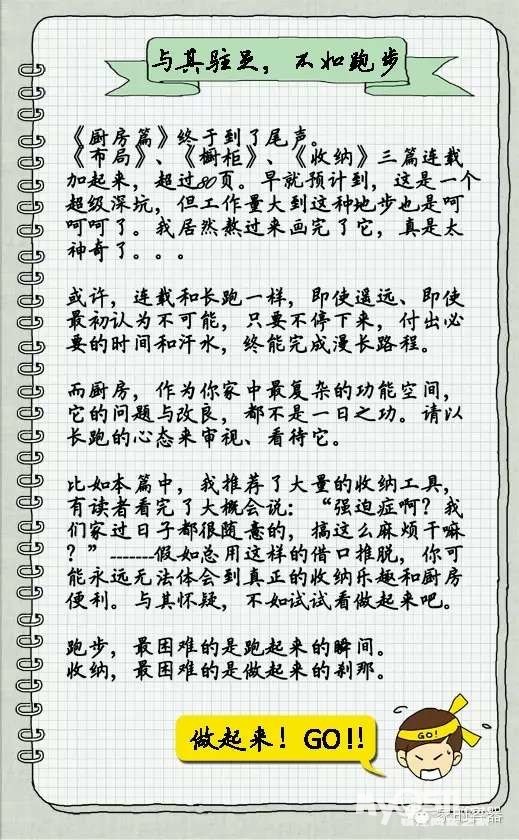 与其驻足，不如跑步
《厨房篇》终于到了尾声。
《布局》、《橱柜》、《收纳》三篇连载
加起来，超过80页。早就预计到，这是一个
超级深坑，但工作量大到这种地步也是呵
呵呵了。我居然熬过来画完了它，真是太
神奇了。。。
或许，连载和长跑一样，即使遥远、即使
最初认为不可能，只要不停下来，付出必
要的时间和汗水，终能完成漫长路程。
而厨房，作为你家中最复杂的功能空间，
它的问题与改良，都不是一日之功。请以
长跑的心态来审视、看待它。
比如本篇中，我推荐了大量的收纳工具，
有读者看完了大概会说：“强迫症啊？我
们家过日子都很随意的，搞这么麻烦干嘛
？”-------假如总用这样的借口推脱，你可
能永远无法体会到真正的收纳乐趣和厨房
便利。与其怀疑，不如试试看做起来吧。
跑步，最困难的是跑起来的瞬间。
收纳，最困难的是做起来的刹那。
GO!
做起来！GO!!